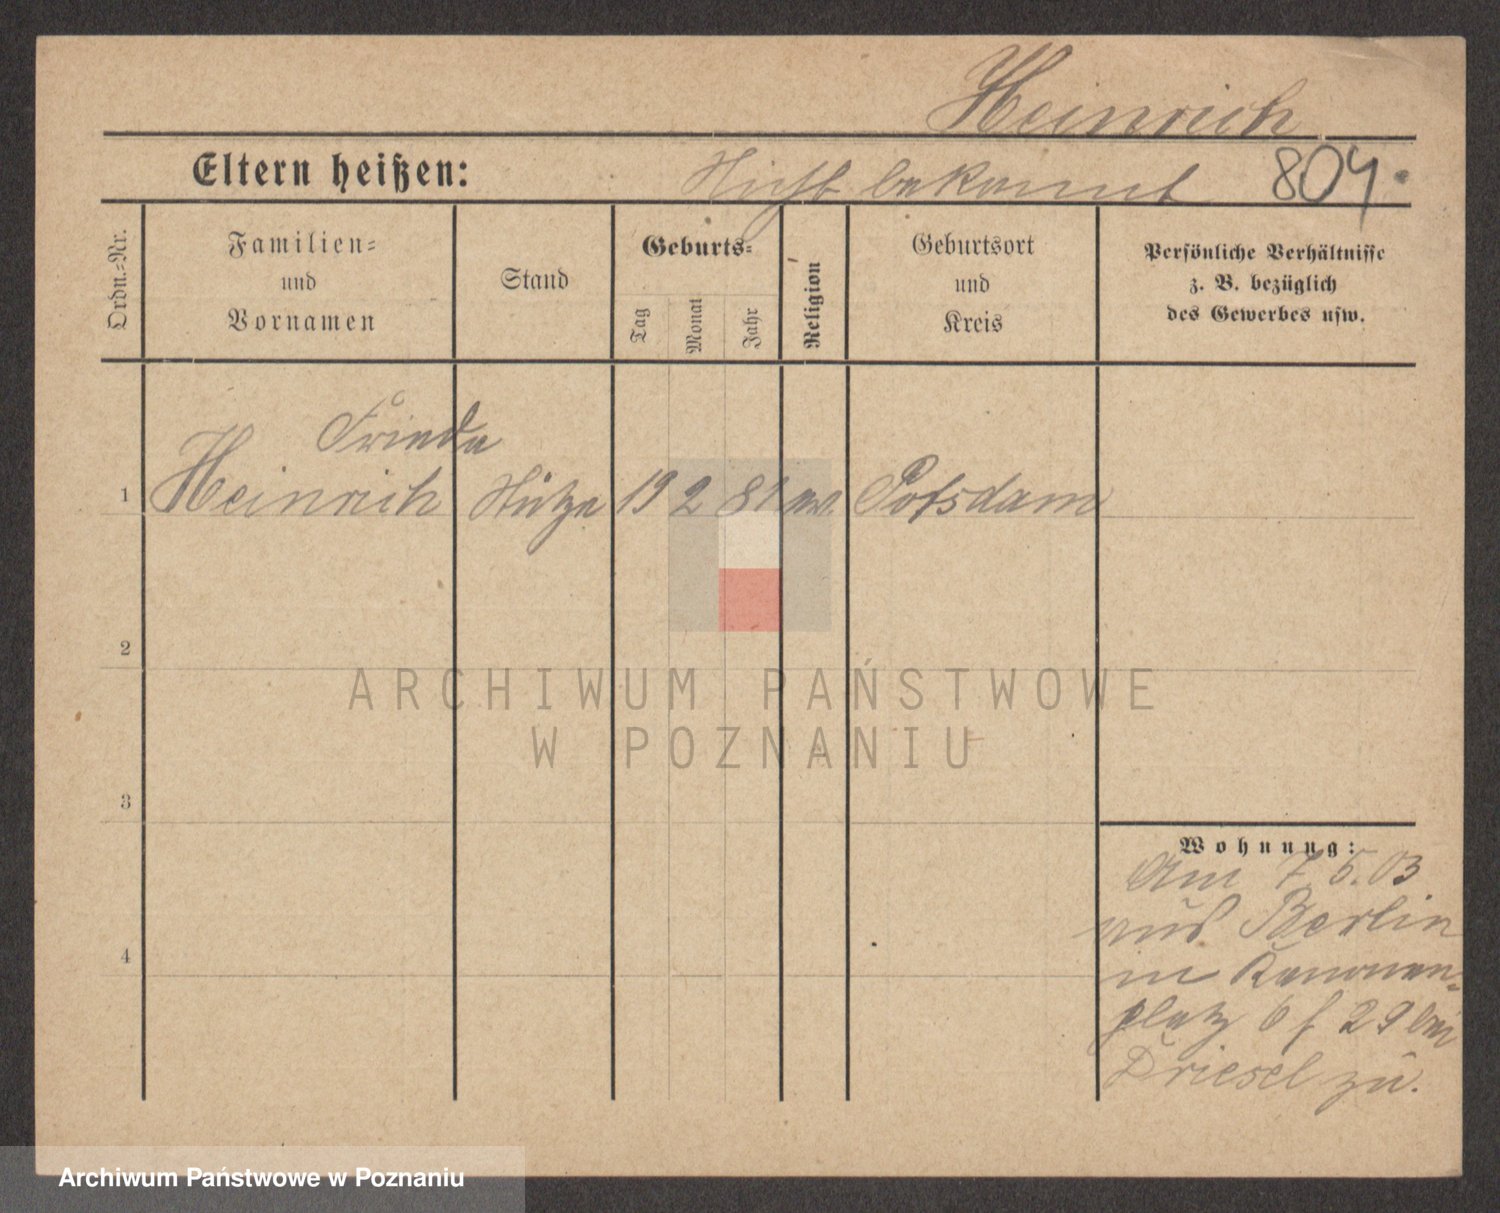 Heinrich
Eltern heißen: Nicht bekannt 804.
Ordn.=Nr.
Familien=
und
Vornamen
Stand
Geburts=
Tag
Monat
Jahr
Religion
Geburtsort
und
Kreis
Persönliche Verhältnisse
z. B. bezüglich
des Gewerbes usw.
Frieda
1 Heinrich Stütze 19 2 81 ev. Potsdam
2
ARCHIWUM PAŃSTWOWE
W POZNANIU
3
Wohnung:
Am 7.5.03
aus Berlin
in Kanonen=
platz 6 f 29 bei
Driesel zu.
4
Archiwum Państwowe w Poznaniu